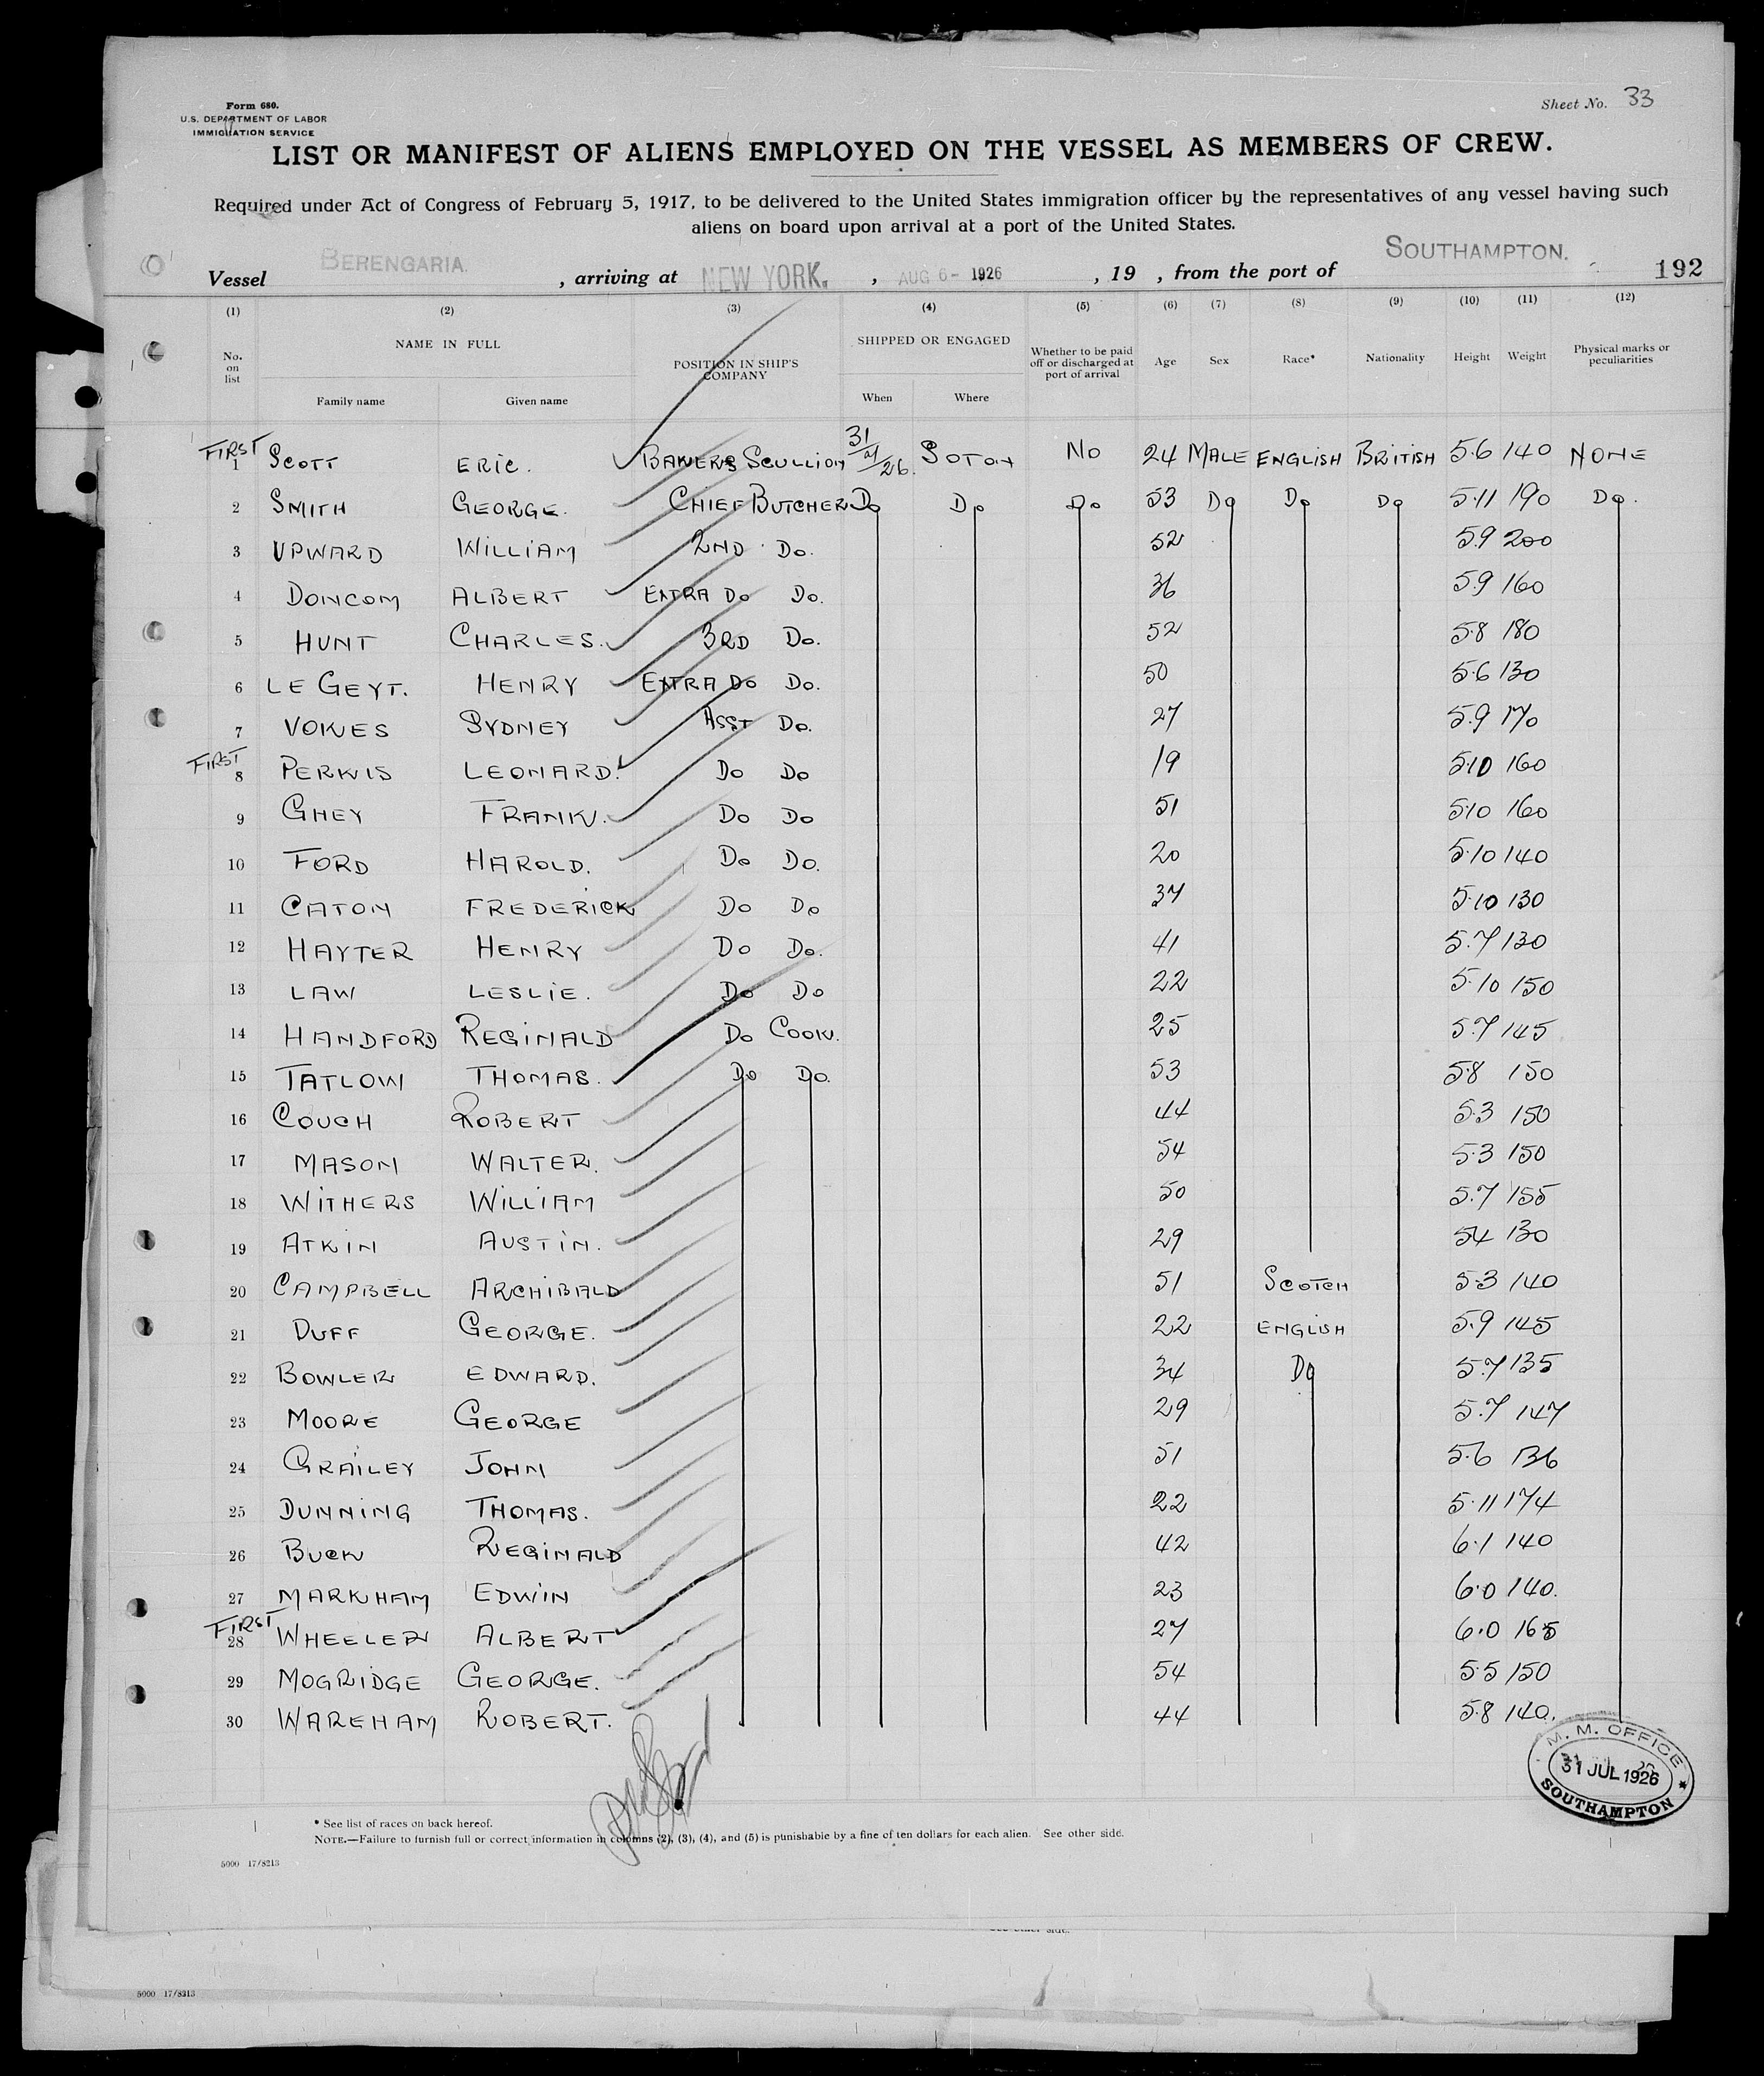 Form 680.
U.S. DEPARTMENT OF LABOR
IMMIGRATION SERVICE
Sheet No. 33
LIST OR MANIFEST OF ALIENS EMPLOYED ON THE VESSEL AS MEMBERS OF CREW.
Required under Act of Congress of February 5, 1917, to be delivered to the United States immigration officer by the representatives of any vessel having such
aliens on board upon arrival at a port of the United States.
Vessel BERENGARIA. , arriving at NEW YORK. , AUG 6- 1926 , 19 , from the port of SOUTHAMPTON. 192
(1) (2) (3) (4) (5) (6) (7) (8) (9) (10) (11) (12)
No. on list NAME IN FULL Family name Given name POSITION IN SHIP'S COMPANY SHIPPED OR ENGAGED When Where Whether to be paid off or discharged at port of arrival Age Sex Race* Nationality Height Weight Physical marks or peculiarities
FIRST
1 SCOTT ERIC. BAKERS SCULLION 31/7/26. SOTON NO 24 MALE ENGLISH BRITISH 5.6 140 NONE
2 SMITH GEORGE. CHIEF BUTCHER DO DO DO 53 DO DO DO 5.11 190 DO.
3 UPWARD WILLIAM 2ND DO. 52 5.9 200
4 DONCOM ALBERT EXTRA DO DO. 36 5.9 160
5 HUNT CHARLES. 3RD DO. 52 5.8 180
6 LE GEYT. HENRY EXTRA DO DO. 50 5.6 130
7 VOKES SYDNEY ASST DO. 27 5.9 170
FIRST
8 PERKIS LEONARD. DO DO 19 5.10 160
9 GHEY FRANK. DO DO 51 5.10 160
10 FORD HAROLD. DO DO. 20 5.10 140
11 CATON FREDERICK DO DO 37 5.10 130
12 HAYTER HENRY DO DO. 41 5.7 130
13 LAW LESLIE. DO DO 22 5.10 150
14 HANDFORD REGINALD DO COOK. 25 5.7 145
15 TATLOW THOMAS. DO DO. 53 5.8 150
16 COUCH ROBERT 44 5.3 150
17 MASON WALTER. 54 5.3 150
18 WITHERS WILLIAM 50 5.7 155
19 ATKIN AUSTIN. 29 5.4 130
20 CAMPBELL ARCHIBALD 51 SCOTCH 5.3 140
21 DUFF GEORGE. 22 ENGLISH 5.9 145
22 BOWLER EDWARD. 34 DO 5.7 135
23 MOORE GEORGE 29 5.7 147
24 GRAILEY JOHN 51 5.6 136
25 DUNNING THOMAS. 22 5.11 174
26 BUCK REGINALD 42 6.1 140
27 MARKHAM EDWIN 23 6.0 140.
FIRST
28 WHEELER ALBERT 27 6.0 165
29 MOGRIDGE GEORGE. 54 5.5 150
30 WAREHAM ROBERT. 44 5.8 140.
M. M. OFFICE
31 JUL 1926
SOUTHAMPTON
* See list of races on back hereof.
NOTE.—Failure to furnish full or correct information in columns (2), (3), (4), and (5) is punishable by a fine of ten dollars for each alien. See other side.
5000 17/8213
See other side.
5000 17/8213